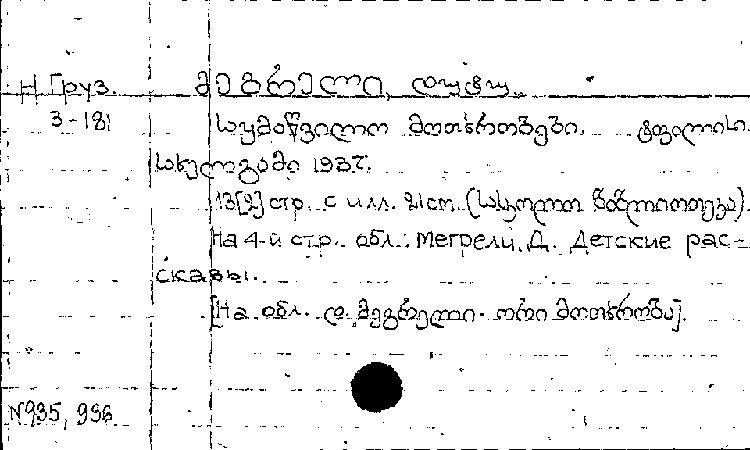 Н Груз. მეგრელი, დუტუ.
3-181 საყმაწვილო მოთხრობები. ტფილისი.
სახელგამი 1937.
13[2] стр. с илл. 21 см. (სასკოლო ბიბლიოთეკა).
На 4-й стр. обл.: Мегрели, Д. Детские рас-
сказы.
[На обл. დ. მეგრელი. ორი მოთხრობა].
№935, 936